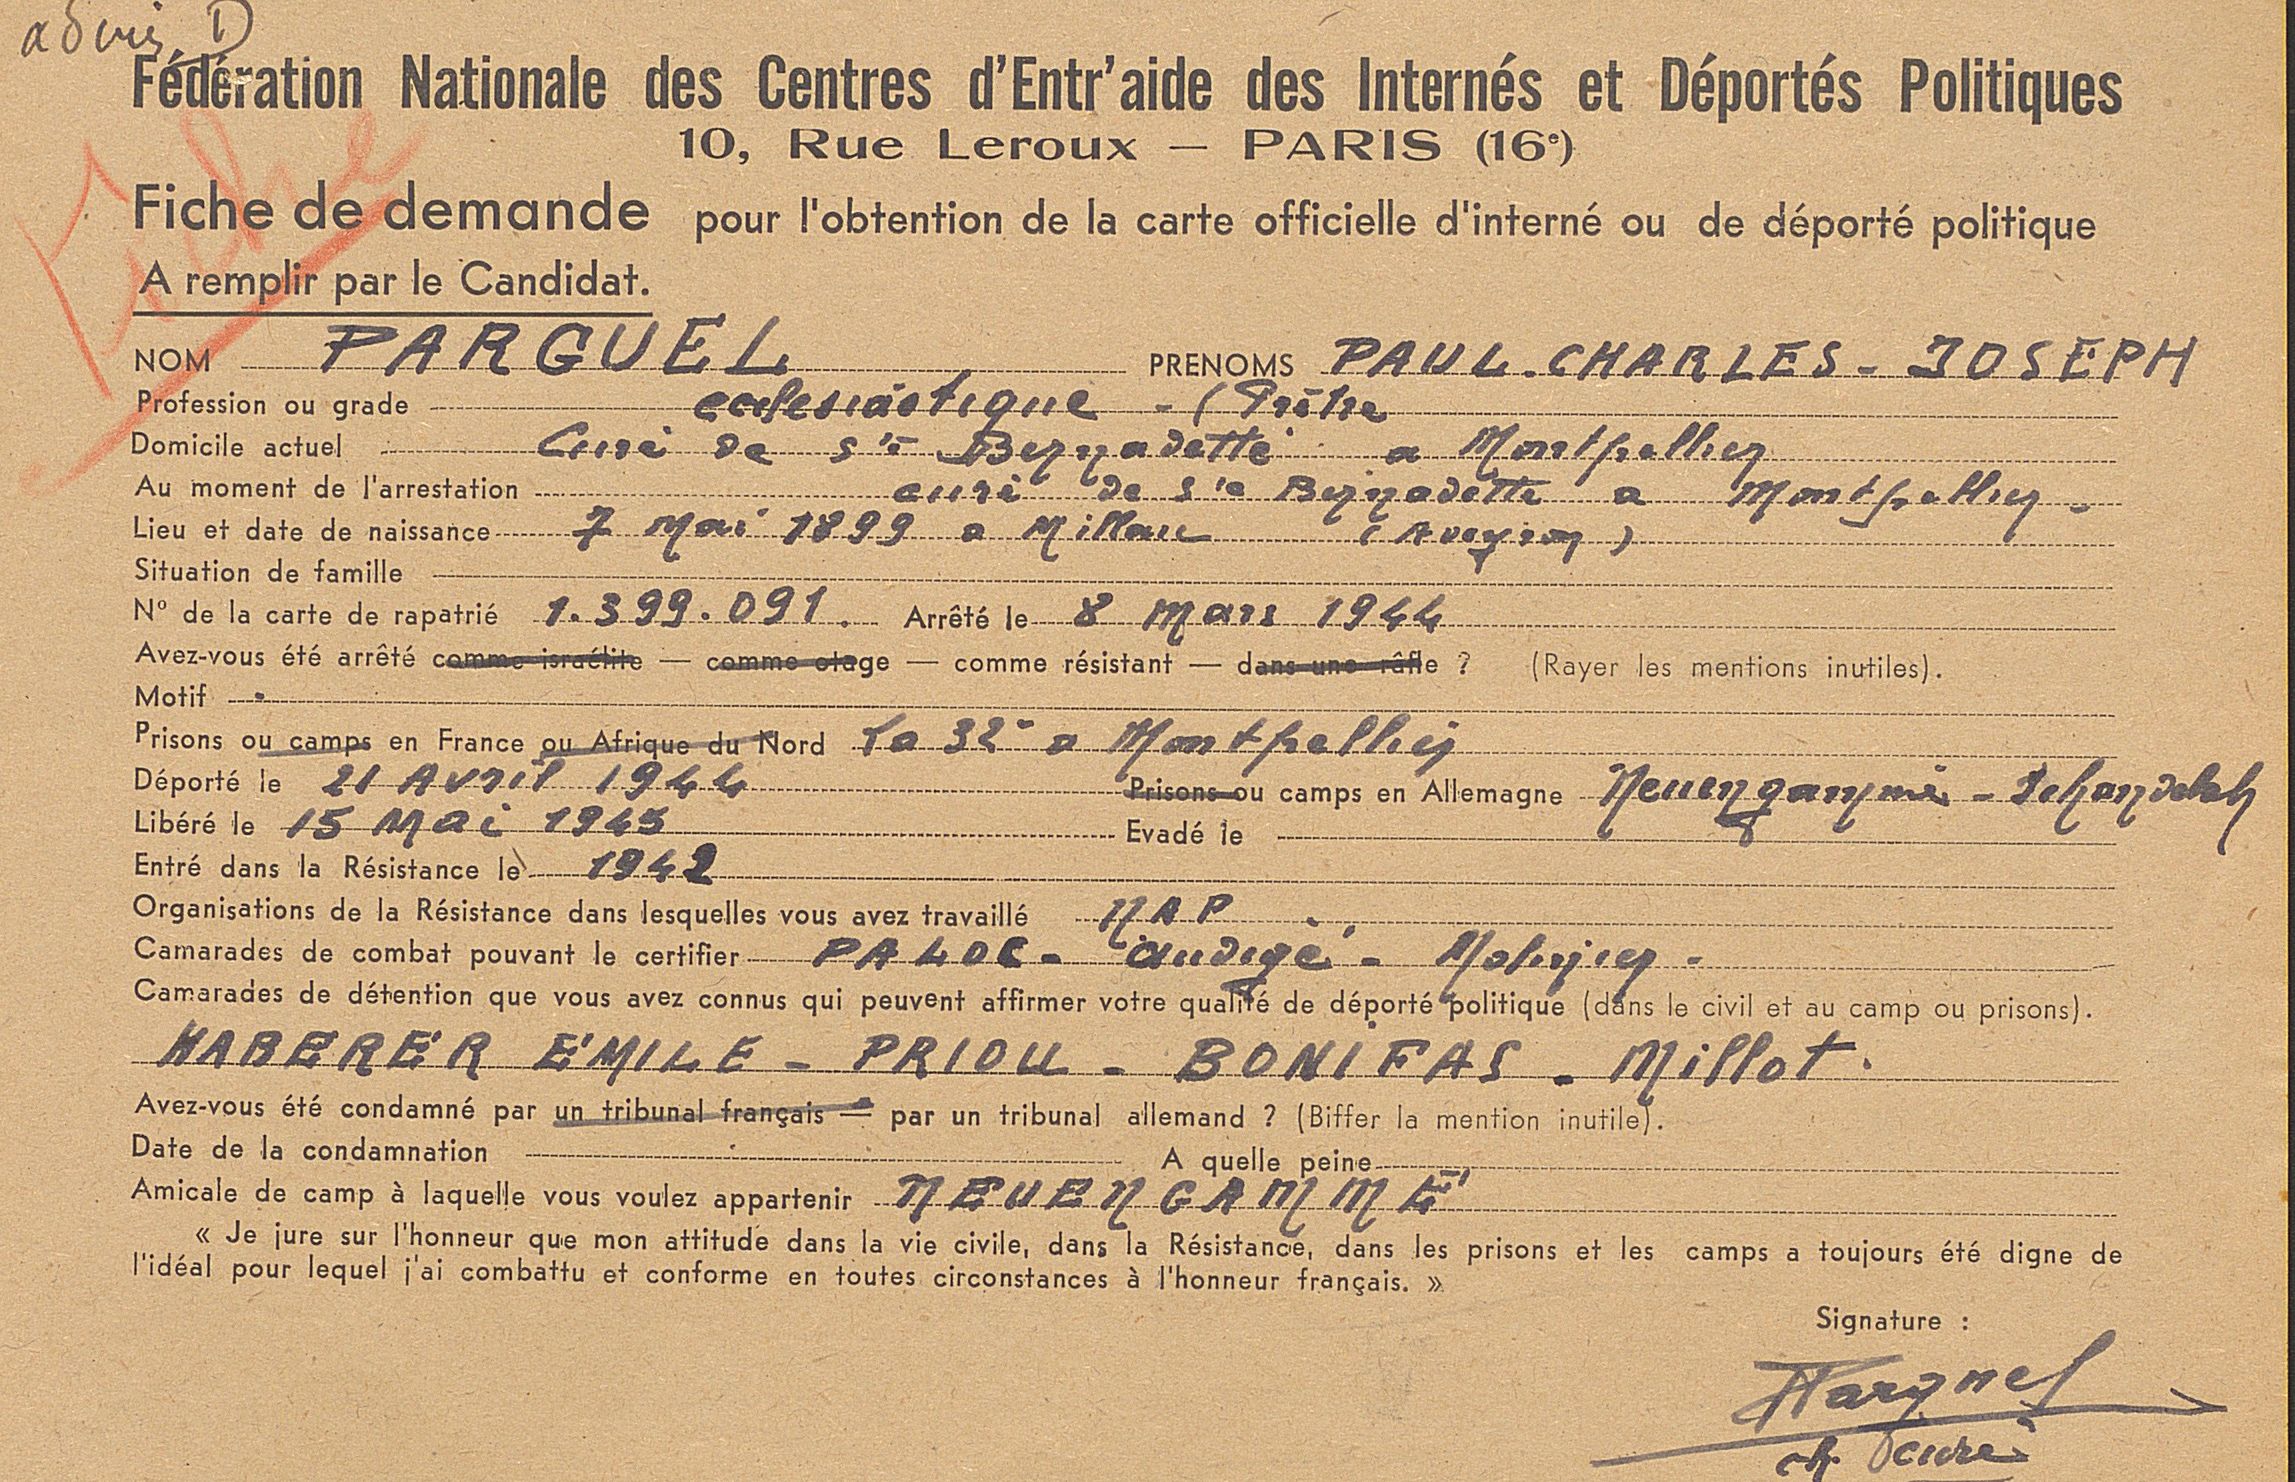 admis D
Fédération Nationale des Centres d'Entr'aide des Internés et Déportés Politiques
10, Rue Leroux — PARIS (16e)
Fiche
Fiche de demande pour l'obtention de la carte officielle d'interné ou de déporté politique
A remplir par le Candidat.
NOM PARGUEL PRENOMS PAUL-CHARLES-JOSEPH
Profession ou grade ecclesiastique - (Prêtre
Domicile actuel Curé de Ste Bernadette a Montpellier
Au moment de l'arrestation curé de Ste Bernadette a Montpellier -
Lieu et date de naissance 7 Mai 1899 a Millau (Aveyron)
Situation de famille
No de la carte de rapatrié 1.399.091. Arrêté le 8 Mars 1944
Avez-vous été arrêté comme israélite — comme otage — comme résistant — dans une râfle ? (Rayer les mentions inutiles).
Motif
Prisons ou camps en France ou Afrique du Nord Le 32e a Montpellier
Déporté le 21 Avril 1944 Prisons ou camps en Allemagne Neuengamme - Schandelah
Libéré le 15 Mai 1945 Evadé le
Entré dans la Résistance le 1942
Organisations de la Résistance dans lesquelles vous avez travaillé NAP
Camarades de combat pouvant le certifier PALOC - Audigé -
Camarades de détention que vous avez connus qui peuvent affirmer votre qualité de déporté politique (dans le civil et au camp ou prisons).
HABERER EMILE - PRIOU - BONIFAS - Millot.
Avez-vous été condamné par un tribunal français — par un tribunal allemand ? (Biffer la mention inutile).
Date de la condamnation A quelle peine
Amicale de camp à laquelle vous voulez appartenir NEUENGAMME
« Je jure sur l'honneur que mon attitude dans la vie civile, dans la Résistance, dans les prisons et les camps a toujours été digne de
l'idéal pour lequel j'ai combattu et conforme en toutes circonstances à l'honneur français. »
Signature :
Parguel
curé